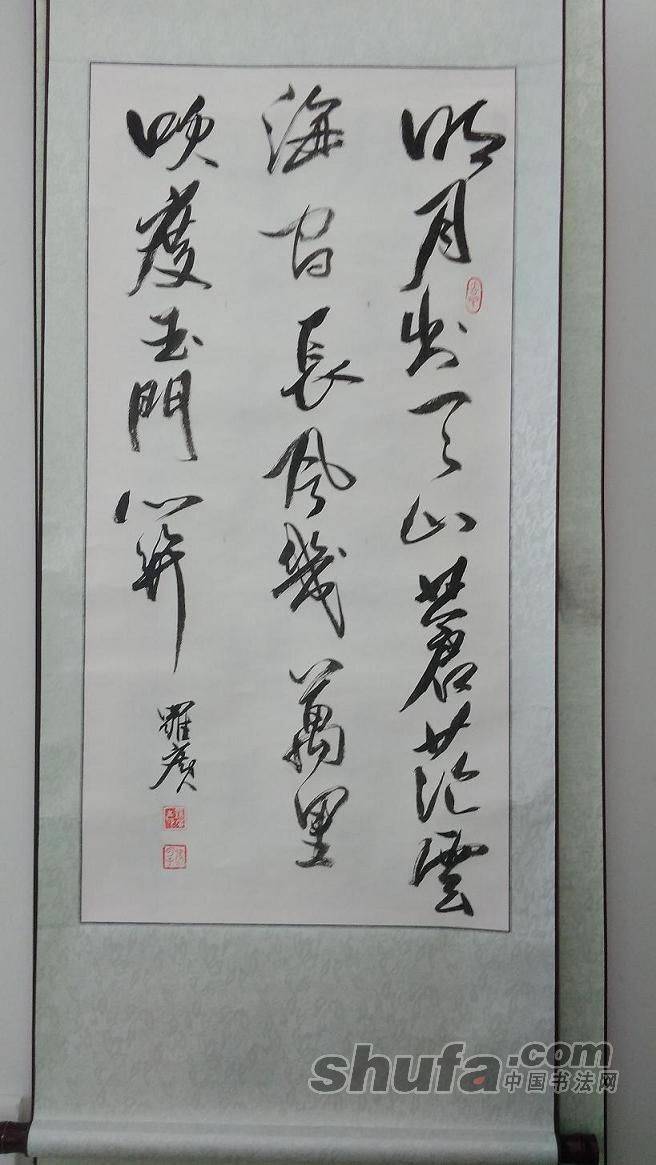 明月出天山蒼茫雲
海間長風幾萬里
吹度玉門關
羅廣
shufa.com
中国书法网